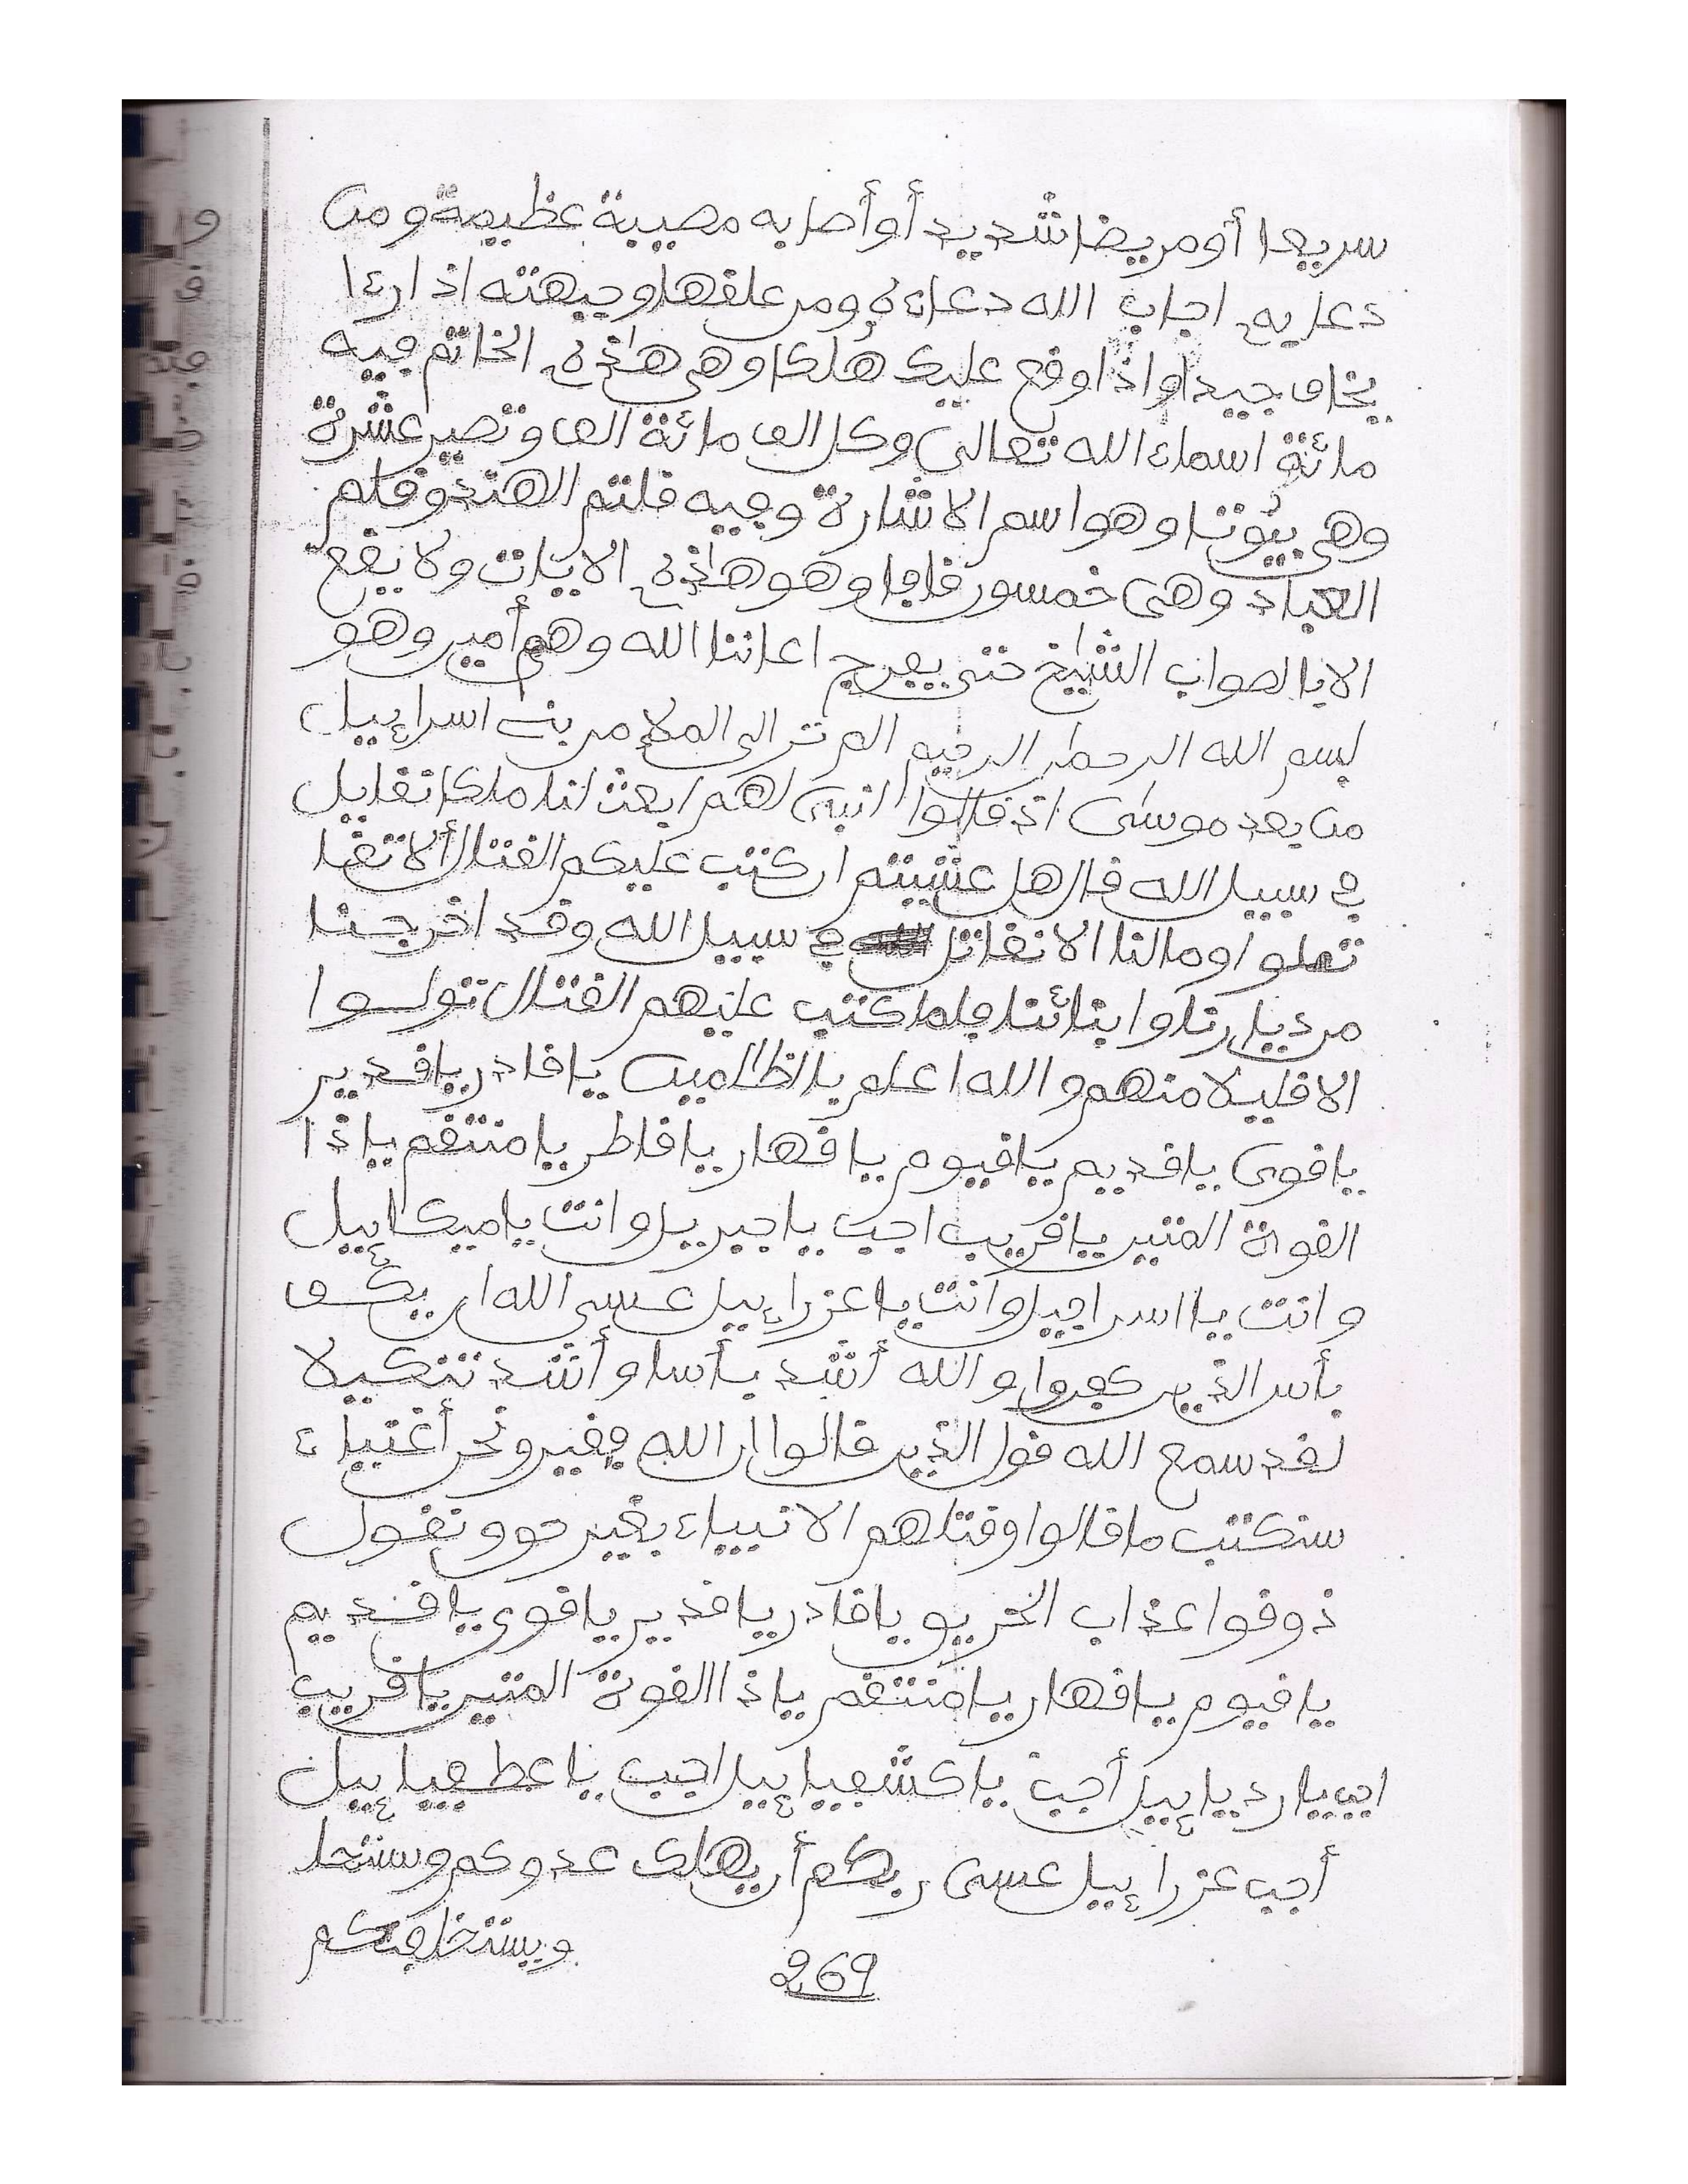 سريعا أو مريضا شديد أو أصابه مصيبة عظيمة ومن
دعا به اجاب الله دعاءه ومن علقها وجبهته اذا رءا
يخاف جيدا واذا وقع عليك هلكا وهي هاذه الخاتم فيه
مائة اسماء الله تعالى وكل الف مائة الف وتصير عشرة
وهي بيوتنا وهو اسم الاشارة وفيه قلتم الهند وقلم
العباد وهي خمسون قافا وهو هاذه الايات ولا يقع
الا بالصواب الشايخ حتى يفرح اعاننا الله وهم أمين وهو
بسم الله الرحمان الرحيم الم تر الى الملإ من بني اسراءيل
من بعد موسى اذ قالوا لنبي لهم ابعث لنا ملكا نقايل
في سبيل الله قال هل عسيتم ان كتب عليكم القتال ألا تقا
تعلوا وما لنا الا نقاتل في سبيل الله وقد اخرجنا
من ديارنا وابنائنا فلما كتب عليهم القتال تولوا
الا قليلا منهم والله اعلم بالظالمين يا قادر يا قدير
يا قوى يا قديم يا قيوم يا قهار يا قاطر يا منتقم يا ذا
القوة المتين يا قريب اجب يا جبريل وانت يا ميكاييل
وانت يا اسرافيل وانت يا عزراييل عسى الله ان يكف
بأس الذين كفروا والله أشد بأسا وأشد تنكيلا
لقد سمع الله قول الذين قالوا ان الله فقير ونحن أغنياء
سنكتب ما قالوا وقتلهم الانبياء بغير حق ونقول
ذوقوا عذاب الحريق يا قادر يا قدير يا قوى يا قديم
يا قيوم يا قهار يا منتقم يا ذا القوة المتين يا قريب
اجب يا رديايبل أجب يا كشفياييل اجب يا عطفياييل
أجب عزراييل عسى ربكم أن يهلك عدوكم وستخلـ
ويستخلفكم
269